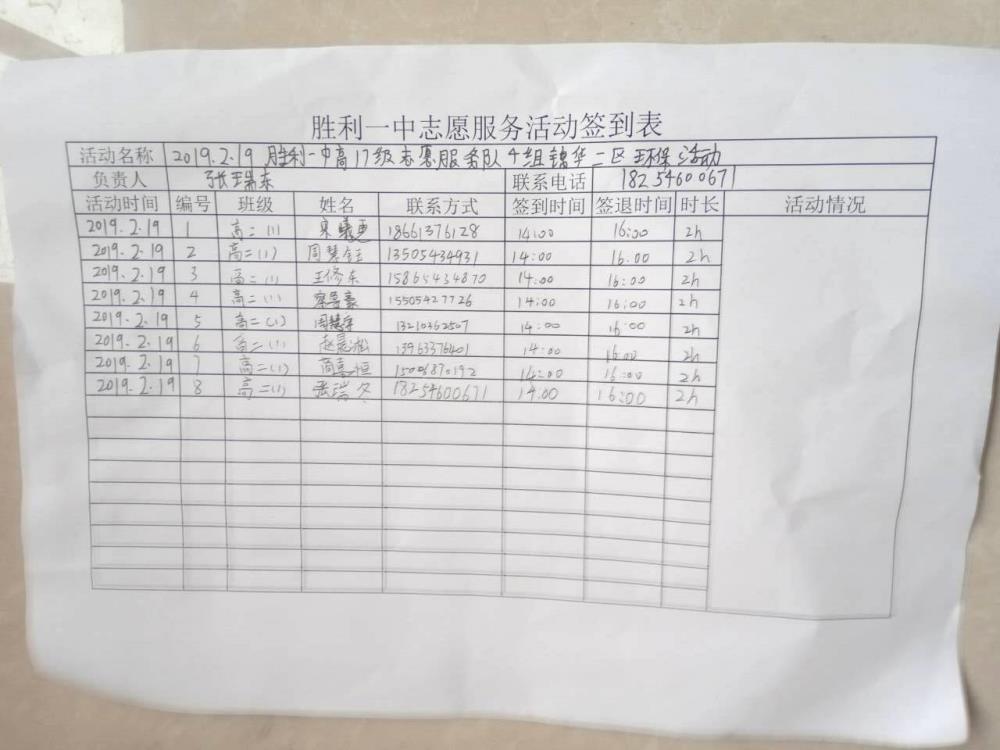 胜利一中志愿服务活动签到表
活动名称 2019.2.19 胜利一中高17级志愿服务队4组锦华二区环保活动
负责人 张瑞东 联系电话 18254600671
活动时间 编号 班级 姓名 联系方式 签到时间 签退时间 时长 活动情况
2019.2.19 1 高二(1) 18661376128 14:00 16:00 2h
2019.2.19 2 高二(1) 周慧钰 13505434931 14:00 16:00 2h
2019.2.19 3 高二(1) 王修东 15865434870 14:00 16:00 2h
2019.2.19 4 高二(1) 15505427726 14:00 16:00 2h
2019.2.19 5 高二(1) 13210362507 14:00 16:00 2h
2019.2.19 6 高二(1) 13963376401 14:00 16:00 2h
2019.2.19 7 高二(1) 商嘉恒 15006870192 14:00 16:00 2h
2019.2.19 8 高二(1) 18254600671 14:00 16:00 2h